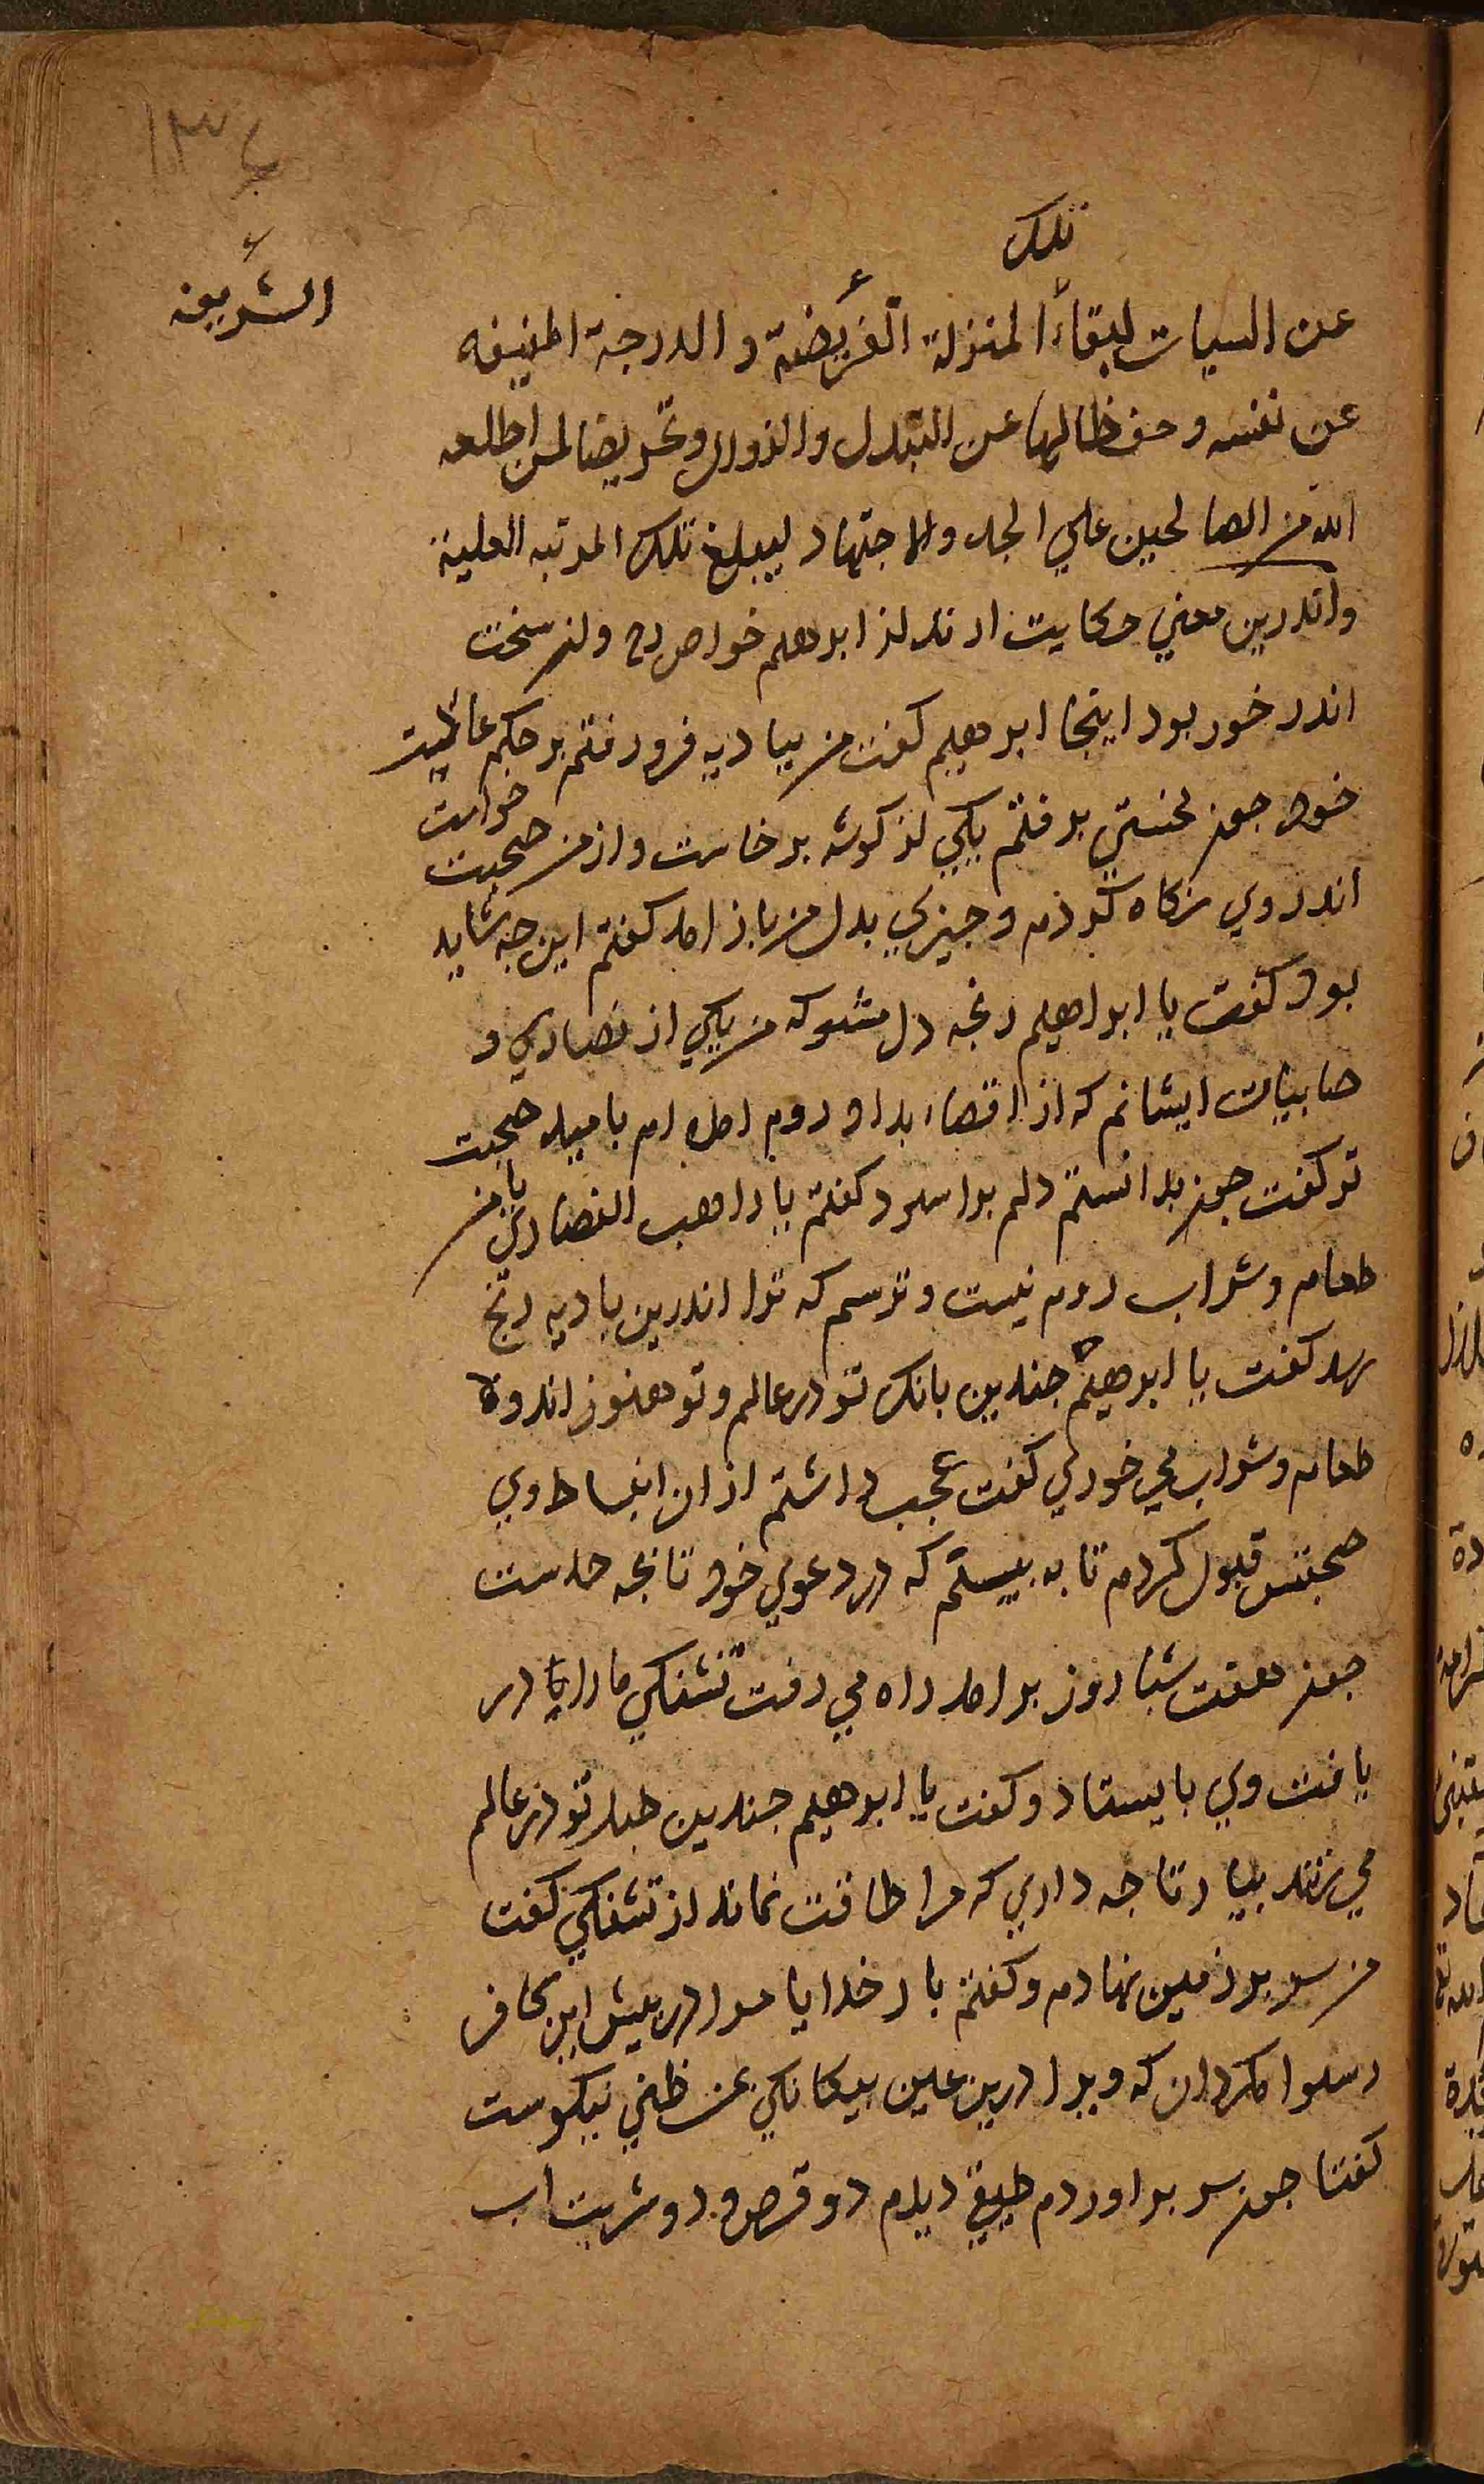 ١٣٤
تلك
الشريفة
عن السيات لبقاء المنزلة الفريضة و الدرجة المنيفه
عن نفسه وحفظا لها عن التبدل والزوال وتحريضا لمن اطلعه
الله من الصالحين علي الجد والاجتهاد ليبلغ تلك المرتبه العلية
واندرين معني حكايت ارند از ابرهيم خواص رح وان سخت
اندر خور بود اينجا ابرهيم كفت من بباديه فرو رفتم بر حكم عاليت
خود جون لختي برفتم يكي از كوشه برخاست واز من صحبت خواست
اندر وي نكاه كردم و جيزي بدل من باز امد كفتم اين جه شايد
بود كفت يا ابراهيم رنجه دل مشو كه من يكي از نصاري و
صابيان ايشانم كه از اقصاء بلاد روم امده ام باميد صحبت
تو كفت جون بدانستم دلم براسود كفتم يا راهب النصاري با من
طعام وشراب روم نيست وترسم كه ترا اندرين باديه رنج
رسد كفت يا ابرهيم جندين بانك تو در عالم وتو هنوز اندوه
طعام وشراب مي خوري كفت عجب داشتم از ان انبساط وي
صحبتش قبول كردم تا به بينم كه در دعوي خود تا بجه حدست
جون هفت شباروز برامد راه مي رفت تشنكي ما را يا در
يافت وي بايستاد و كفت يا ابرهيم جندين طبل تو در عالم
مي زنند بيار تا جه داري كه مرا طاقت نماند از تشنكي كفت
من سر بر زمين نهادم وكفتم بار خدايا مرا در پيش اين كافر
رسوا مكردان كه ويرا درين عين بيكانكي بمن ظني نيكوست
كفتا جون سر براوردم طبقي ديدم دو قرص و دو شربت اب